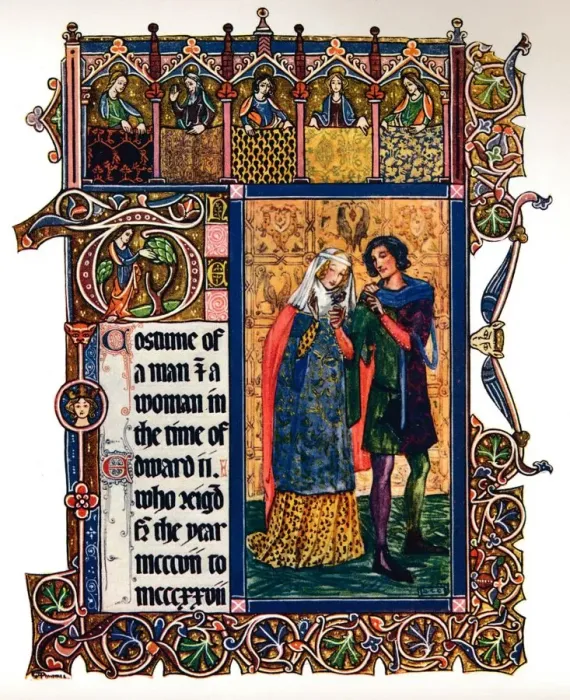 The
Costume of
a man & a
woman in
the time of
Edward ii.
who reigd
fr the year
mcccvii to
mcccxxvii